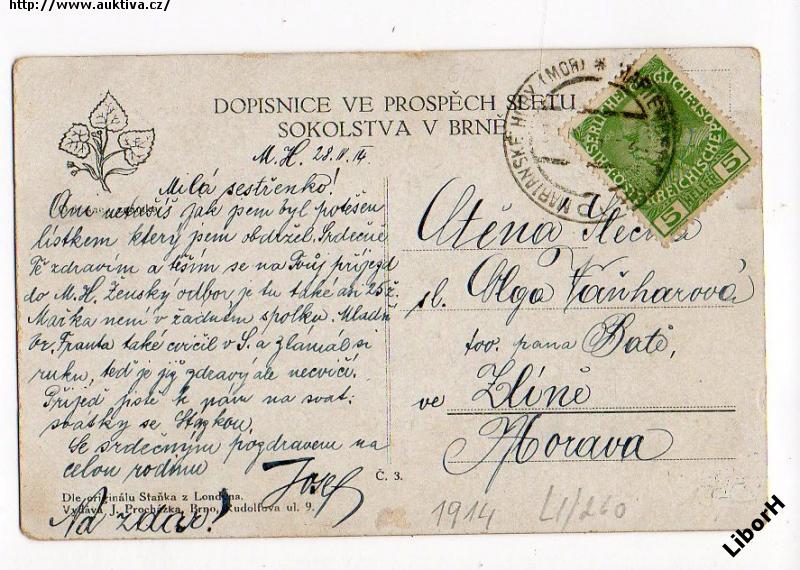 http://www.auktiva.cz/
DOPISNICE VE PROSPĚCH SLETU
SOKOLSTVA V BRNĚ
M. H. 28.IV.14
Milá sestřenko!
Ani nevěříš jak jsem byl potěšen
lístkem který jsem obdržel. Srdečně
Tě zdravím a těším se na Tvůj příjezd
do M. H. Ženský odbor je tu také asi 25 ž.
Mařka není v žádném spolku. Mladší
br. Franta také cvičil v S. a zlámal si
ruku, teď je již zdravý ale necvičí.
Přijeď jistě k nám na svat.
svátky se Stázkou.
Se srdečným pozdravem na
celou rodinu
Josef
Na zdar!
Č. 3.
Dle originálu Staňka z Londýna.
Vydává J. Procházka, Brno, Rudolfova ul. 9.
MARIANSKÉ HORY (MOR) *
5 5
Ctěná Slečna
sl. Olga Vaňharová
tov. pana Batě,
ve Zlíně
Morava
1914 LI/260
LiborH